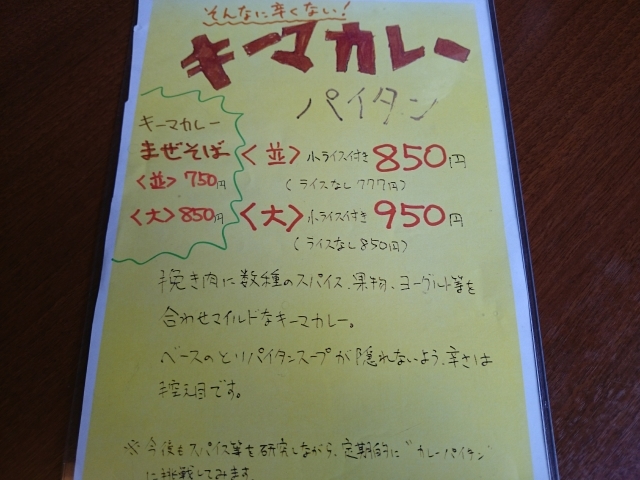 そんなに辛くない!
キーマカレー
パイタン
キーマカレー
まぜそば
<並> 750円
<大> 850円
<並> 小ライス付き 850円
(ライスなし 777円)
<大> 小ライス付き 950円
(ライスなし 850円)
挽き肉に数種のスパイス、果物、ヨーグルト等を
合わせマイルドなキーマカレー。
ベースのとりパイタンスープが隠れないよう、辛さは
控え目です。
※今後もスパイス等を研究しながら、定期的に"カレーパイタン"
に挑戦してみます